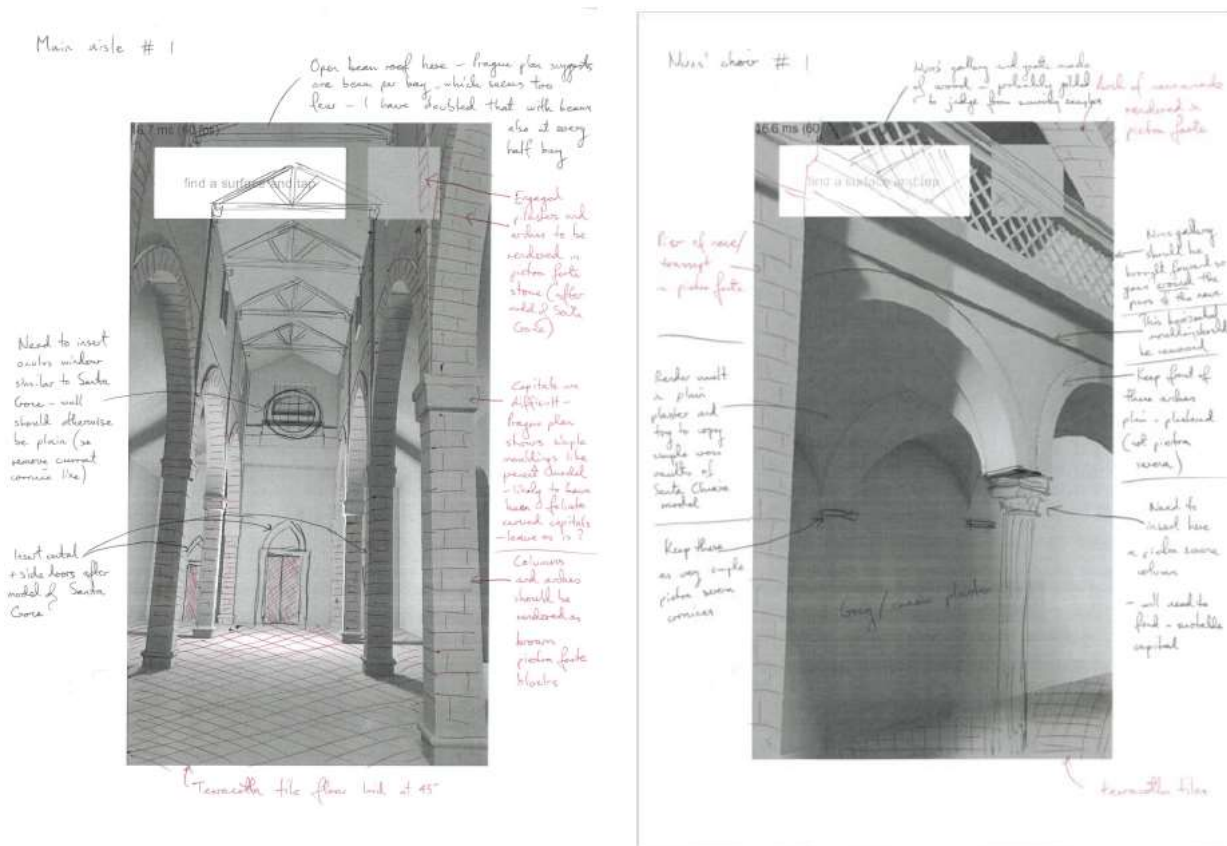 Main aisle # 1
Open beam roof here - Prague plan suggests
one beam per bay - which seems too
few - I have doubled that with beams
also at every
half bay
16.7 ms (60 fps)
find a surface and tap
Engaged
pilasters and
arches to be
rendered in
pietra forte
stone (after
model of Santa
Croce)
Need to insert
oculus window
similar to Santa
Croce - wall
should otherwise
be plain (so
remove current
cornice line)
Capitals are
difficult -
Prague plan
shows simple
mouldings like
present model
- likely to have
been foliate
carved capitals
- leave as is?
Insert central
+ side doors after
model of Santa
Croce
Columns
and arches
should be
rendered as
brown
pietra forte
blocks
Terracotta tile floor laid at 45°
Nuns' choir # 1
Nuns' gallery and grate made
of wood - probably gilded
to judge from surviving examples
Arch of nave arcade
rendered in
pietra forte
16.6 ms (60
find a surface and tap
Pier of nave/
transept
in pietra forte
Nuns gallery
should be
brought forward so
goes around the
piers of the nave
This horizontal
moulding should
be removed
Render vault
in plain
plaster and
try to copy
simple
vaults of
Santa Chiara
model
Keep front of
these arches
plain - plastered
(not pietra
serena)
Keep these
as very simple
pietra serena
cornices
Grey/cream plaster
Need to
insert here
a pietra serena
column
- will need to
find suitable
capital
terracotta tiles